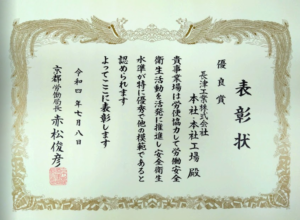 表彰状
優良賞
長津工業株式会社
本社・本社工場 殿
貴事業場は労使協力して労働安全
衛生活動を活発に推進し安全衛生
水準が特に優秀で他の模範であると
認められます
よってここに表彰します
令和四年七月八日
京都労働局長 赤松俊彦